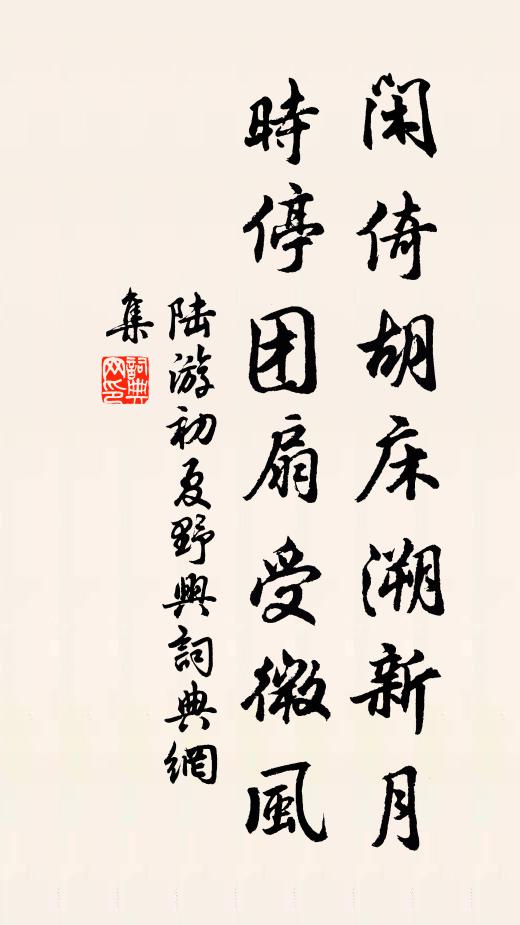 闲倚胡床溯新月
时停团扇受微風
陆游初夏野興詞典網
集
詞典网印